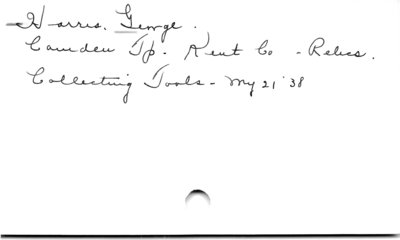 Harris, George.
Camden Tp. Kent Co - Relics.
Collecting Tools - My 21 '38